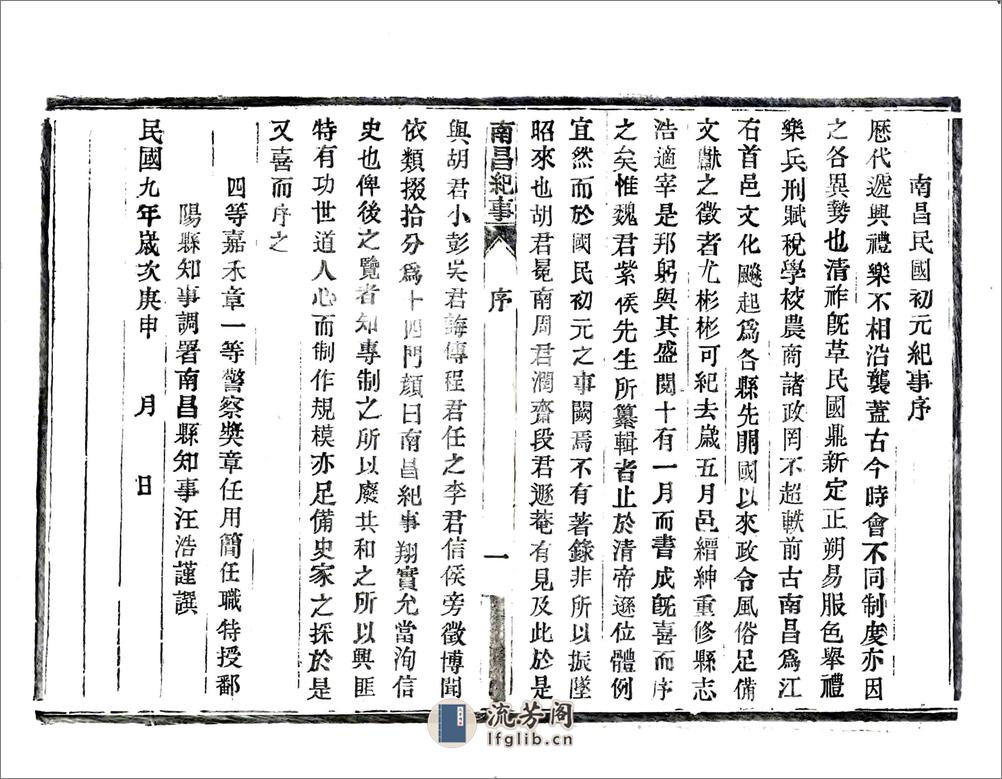 南昌民國初元紀事序
歷代遞興禮樂不相沿襲蓋古今時會不同制度亦因
之各異勢也清祚既革民國鼎新定正朔易服色舉禮
樂兵刑賦稅學校農商諸政罔不超軼前古南昌爲江
右首邑文化飈起爲各縣先開國以來政令風俗足備
文獻之徵者尤彬彬可紀去歲五月邑縉紳重修縣志
浩適宰是邦躬與其盛閱十有一月而書成旣喜而序
之矣惟魏君紫侯先生所纂輯者止於清帝遜位體例
宜然而於國民初元之事闕焉不有著錄非所以振墜
昭來也胡君冕南周君潤齋段君遯菴有見及此於是
南昌紀事 序 一
與胡君小彭吳君誨傳程君任之李君信侯旁徵博聞
依類掇拾分爲十四門顏曰南昌紀事翔實允當洵信
史也俾後之覽者知專制之所以廢共和之所以興匪
特有功世道人心而制作規模亦足備史家之採於是
又喜而序之
四等嘉禾章一等警察獎章任用簡任職特授鄱
陽縣知事調署南昌縣知事汪浩謹譔
民國九年歲次庚申 月 日
流芳阁
lfglib.cn